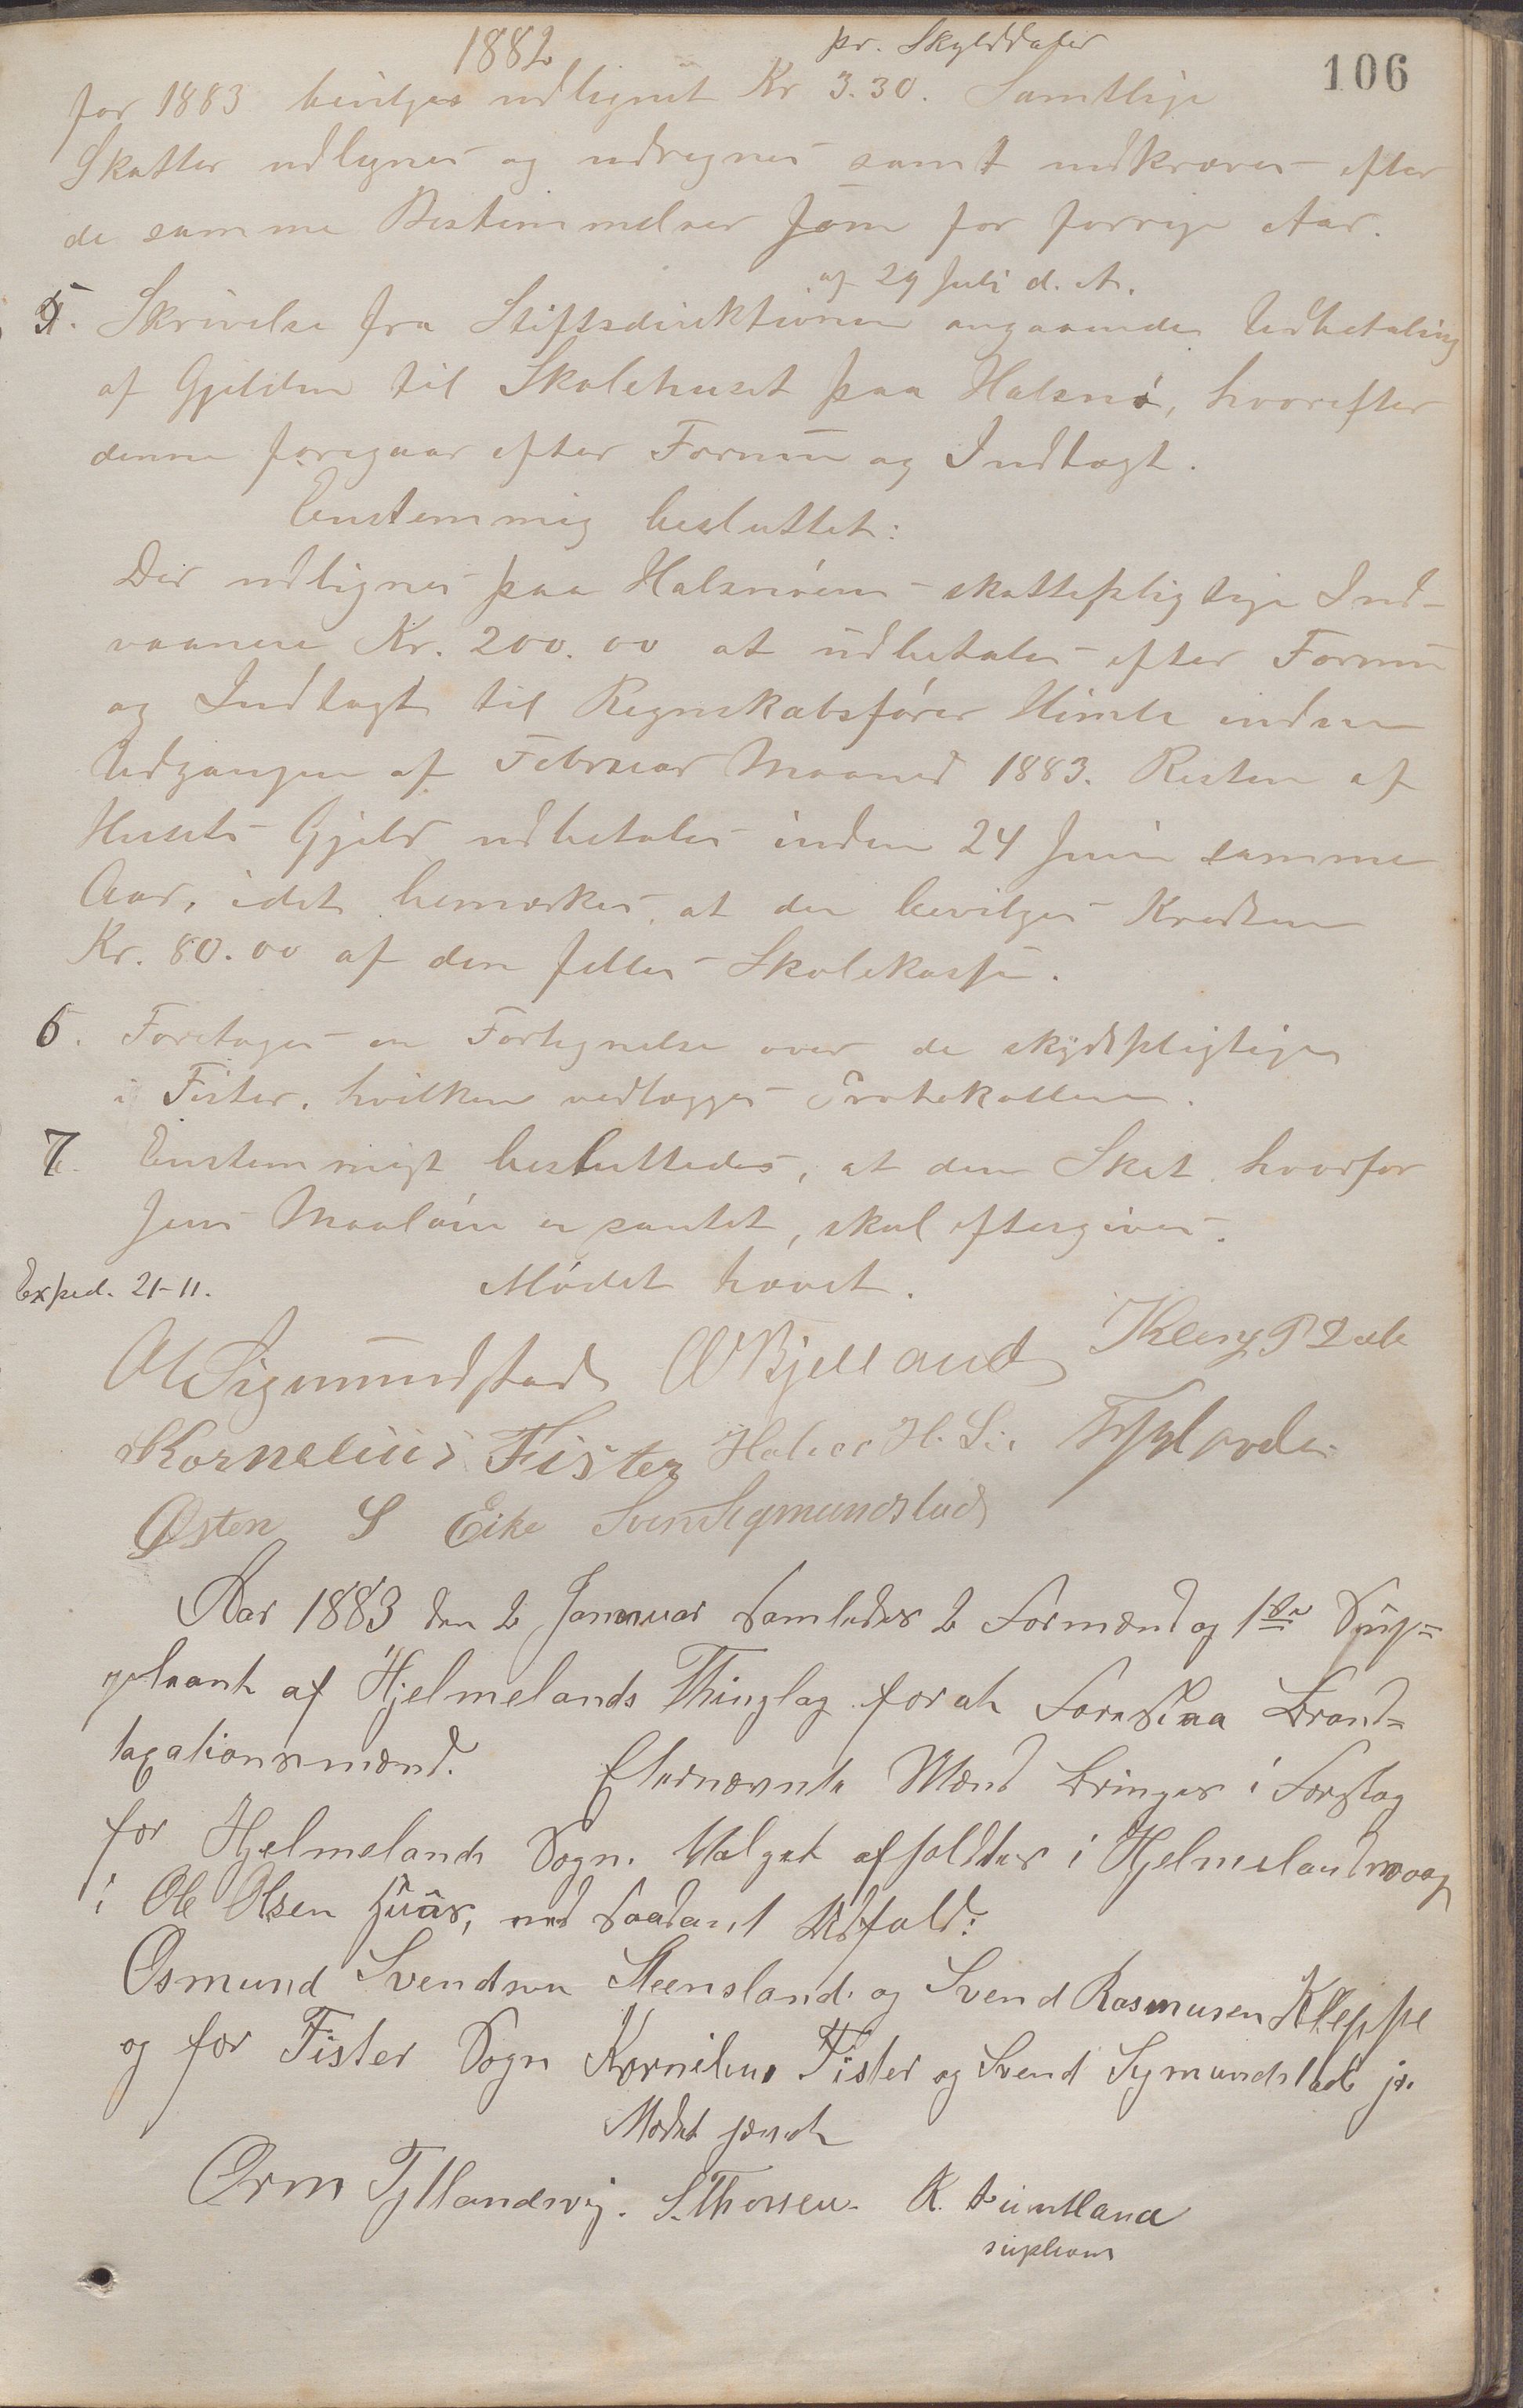 1882
pr. Skylddaler
106
for 1883 bevilges udlignet Kr 3.30. Samtlige
Skatter udlignes og udregnes samt indkræves efter
de samme Bestemmelser som for forrige Aar.
af 29 Juli d. A.
5. Skrivelse fra Stiftsdirektionen angaaende Udbetaling
af Gjelden til Skolehuset paa Halsnø, hvorefter
denne foregaar efter Formue og Indtægt.
Enstemmig besluttet:
Der udlignes paa Halsnøens skattepligtige Ind-
vaanere Kr. 200.00 at udbetales efter Formue
og Indtægt til Regnskabsfører Himle inden
Udgangen af Februar Maaned 1883. Resten af
Husets Gjeld udbetales inden 24 Juni samme
Aar, idet bemærkes, at der bevilges Kredsen
Kr. 80.00 af den felles Skolekasse.
6. Foretages en Fortegnelse over de skydspligtige
i Fister, hvilken vedlægges Protokollen.
7. Enstemmigt besluttedes, at den Skat, hvorfor
Jens Maaløen er pantet, skal eftergives.
Exped. 21-11.
Mødet hævet.
Sigmundstad O Bjelland
Kornelius Fister
Østen S Eike Sven Sigmundstad
Aar 1883 den 2 Januar samledes 2 Formænd og 1ste Sup=
pleant af Hjelmelands Thinglag for at foreslaa Brand=
taxationsmænd. Efternævnte Mænd bringes i Forslag
for Hjelmelands Sogn. Valget afholdtes i Hjelmelandsvaag
i Ole Olsen Huus, med saadant Udfald:
Osmund Svendsen Steensland og Svend Rasmusen Kleppe
og for Fister Sogn Kornelius Fister og Svend Sigmundstad jr.
Mødet hævet
Orm Tytlandsvig. S. Thorsen. K. Tuntland
supleant